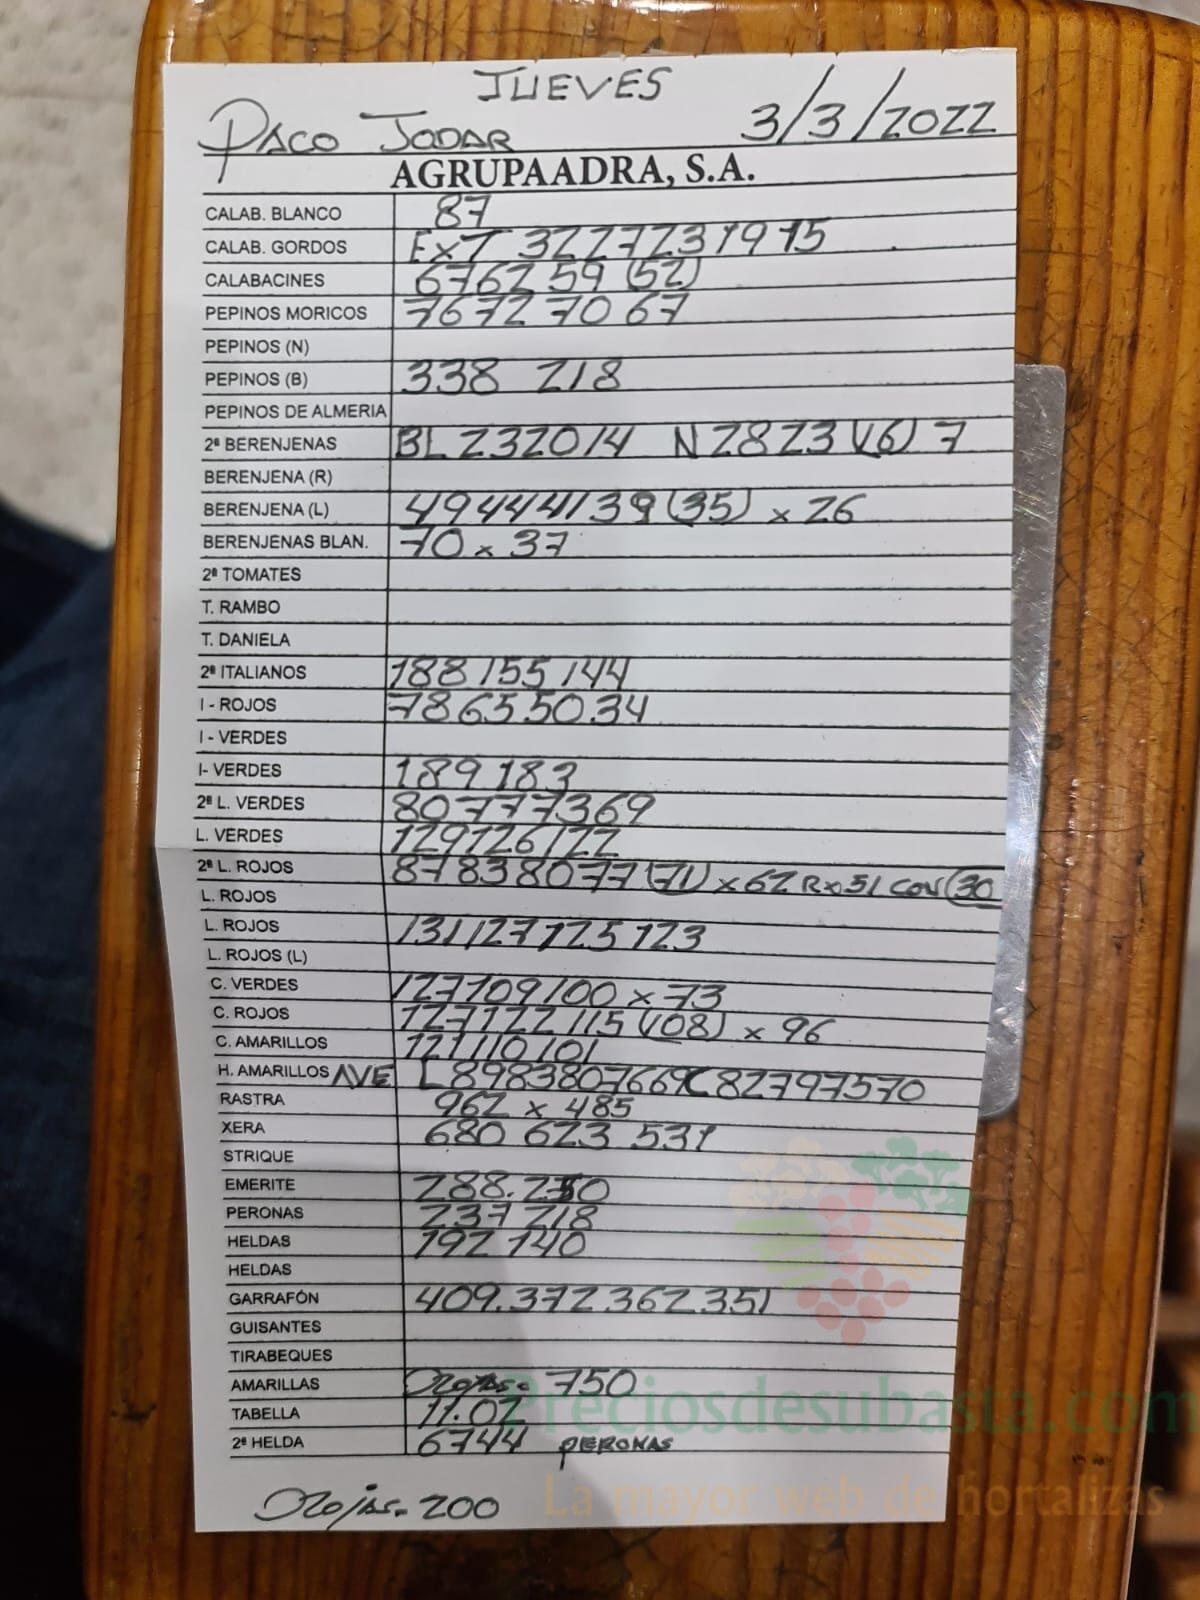 JUEVES
PACO JODAR 3/3/2022
AGRUPAADRA, S.A.
CALAB. BLANCO 87
CALAB. GORDOS EXT 32 27 23 19 15
CALABACINES 67 62 59 (52)
PEPINOS MORICOS 76 72 70 67
PEPINOS (N)
PEPINOS (B) 338 218
PEPINOS DE ALMERIA
2ª BERENJENAS BL 23 20 14 N 28 23 (16) 7
BERENJENA (R)
BERENJENA (L) 49 44 41 39 (35) x 26
BERENJENAS BLAN. 70 x 37
2ª TOMATES
T. RAMBO
T. DANIELA
2ª ITALIANOS 188 155 144
I - ROJOS 78 65 50 34
I - VERDES
I- VERDES 189 183
2ª L. VERDES 80 77 73 69
L. VERDES 129 126 122
2ª L. ROJOS 87 83 80 77 (71) x 62 Rx 51 CON (30
L. ROJOS
L. ROJOS 131 127 125 123
L. ROJOS (L)
C. VERDES 127 109 100 x 73
C. ROJOS 127 122 115 (108) x 96
C. AMARILLOS 121 110 101
H. AMARILLOS AVE L 89 83 80 76 69 C 82 79 75 70
RASTRA 962 x 485
XERA 680 623 531
STRIQUE
EMERITE 288.250
PERONAS 237 218
HELDAS 192 140
HELDAS
GARRAFÓN 409.372 362 351
GUISANTES
TIRABEQUES
AMARILLAS 750
TABELLA 11.02
2ª HELDA 67 44 PERONAS
Preciosdesubasta.com
La mayor web de hortalizas
Rojas. 200